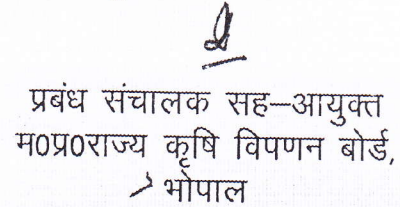 प्रबंध संचालक सह–आयुक्त
म0प्र0राज्य कृषि विपणन बोर्ड,
भोपाल